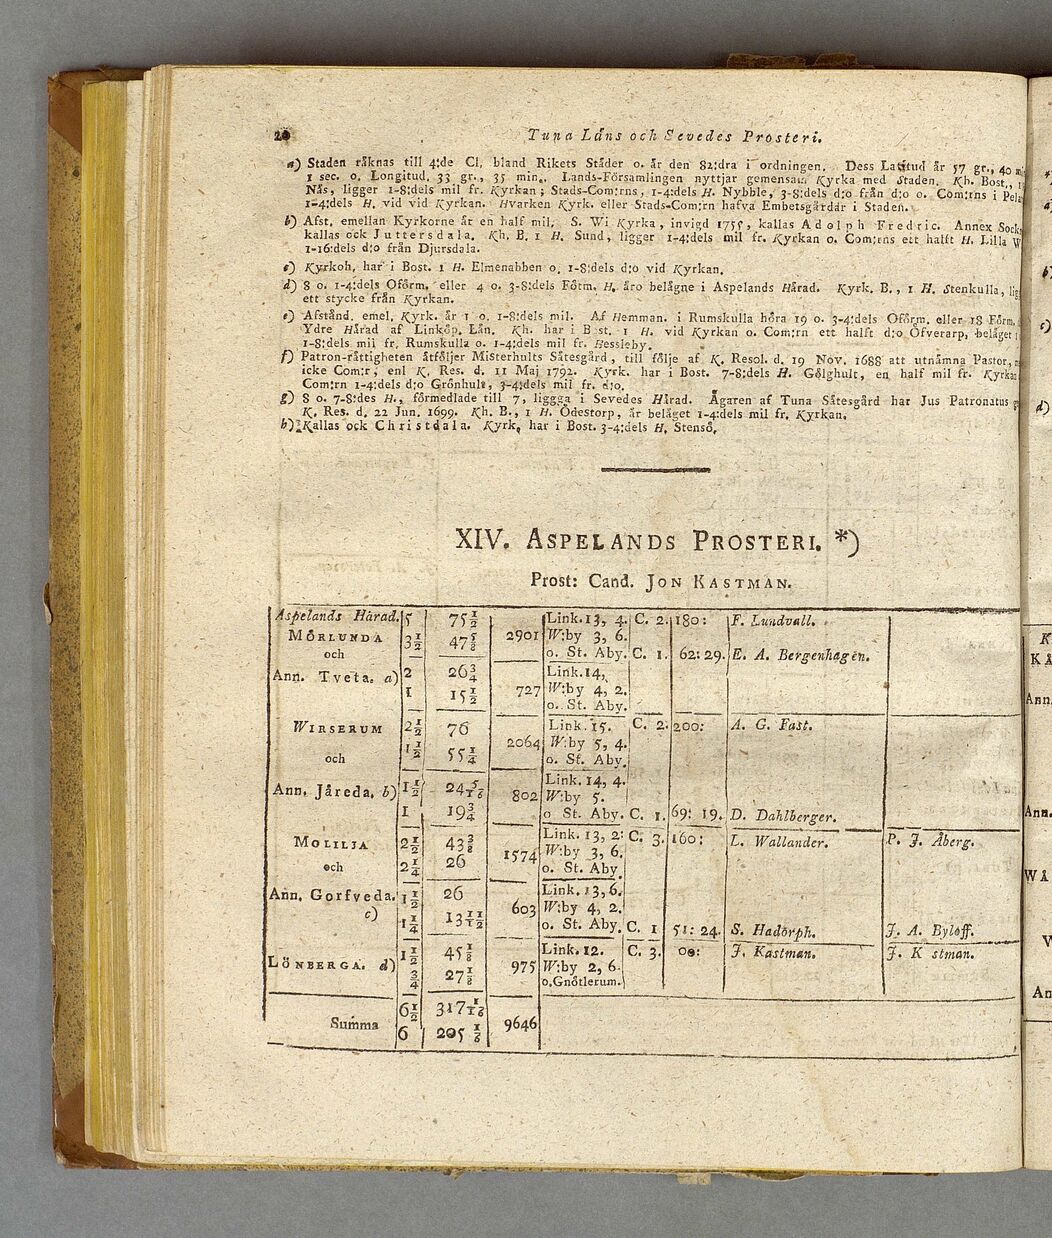 20 Tuna Läns och Sevedes Prosteri.
a) Staden råknas till 4:de Cl, bland Rikets Ståder o. år den 82:dra i ordningen. Dess Latitud år 57 gr., 40
1 sec. o. Longitud. 33 gr., 35 min. Lands-Församlingen nyttjar gemensam Kyrka med Staden. Kh. Bost.,
Nås, ligger 1-8:dels mil fr. Kyrkan; Stads-Com:rns, 1-4:dels H. Nybble, 3-8:dels d:o från d:o o. Com:rns i
1-4:dels H. vid vid Kyrkan. Hvarken Kyrk. eller Stads-Com:rn hafva Embetsgårdar i Staden.
b) Afst. emellan Kyrkorne år en half mil. S. Wi Kyrka, invigd 1755, kallas Adolph Fredric. Annex
kallas ock Juttersdala. Kh. B. 1 H. Sund, ligger 1-4:dels mil fr. Kyrkan o. Com:rns ett halft H. Lilla
1-16:dels d:o från Djursdala.
c) Kyrkoh. har i Bost. 1 H. Elmenabben o. 1-8:dels d:o vid Kyrkan.
d) 8 o. 1-4:dels Oförm. eller 4 o. 3-8:dels Förm. H. åro belågne i Aspelands Hårad. Kyrk. B., 1 H. Stenkulla,
ett stycke från Kyrkan.
e) Afstånd. emel. Kyrk. år 1 o. 1-8:dels mil. Af Hemman. i Rumskulla höra 19 o. 3-4:dels Oförm. eller 18 Förm.
Ydre Hårad af Linköp. Lån. Kh. har i B st. 1 H. vid Kyrkan o. Com:rn ett halft d:o Öfverarp, belåget
1-8:dels mil fr. Rumskulla o. 1-4:dels mil fr. Hessleby.
f) Patron-råttigheten åtföljer Misterhults Såtesgård, till följe af K. Resol. d. 19 Nov. 1688 att utnåmna Pastor,
icke Com:r, enl K. Res. d. 11 Maj 1792. Kyrk. har i Bost. 7-8:dels H. Gölghult, en half mil fr. Kyrkan
Com:rn 1-4:dels d:o Grönhult, 3-4:dels mil fr. d:o.
g) 8 o. 7-8:des H., förmedlade till 7, liggga i Sevedes Hårad. Ågaren af Tuna Såtesgård har Jus Patronatus
K. Res. d. 22 Jun. 1699. Kh. B., 1 H. Ödestorp, år belåget 1-4:dels mil fr. Kyrkan.
h) Kallas ock Christdala. Kyrk. har i Bost. 3-4:dels H. Stensö.
XIV. ASPELANDS PROSTERI. *)
Prost: Cand. JON KASTMAN.
Aspelands Hårad. 5 75 1/2 Link. 13, 4. C. 2. 180: F. Lundvall.
MÖRLUNDA 3 1/2 47 5/8 2901 W:by 3, 6.
och o. St. Aby. C. 1. 62: 29. E. A. Bergenhagen.
Ann. Tveta. a) 2 26 3/4 Link. 14,
1 15 1/2 727 W:by 4, 2.
o. St. Aby.
WIRSERUM 2 1/2 76 Link. 15. C. 2. 200: A. G. Fast.
1 1/2 55 1/4 2064 W:by 5, 4.
och o. St. Aby.
Ann. Jåreda. b) 1 1/2 24 5/16 Link. 14, 4.
802 W:by 5.
1 19 3/4 o St. Aby. C. 1. 69: 19. D. Dahlberger.
MOLILJA 2 1/2 43 3/8 Link. 13, 2: C. 3. 160: L. Wallander. P. J. Åberg.
och 2 1/4 26 1574 W:by 3, 6.
o. St. Aby.
Ann. Gorfveda. 1 1/2 26 Link. 13, 6.
c) 603 W:by 4, 2.
1 1/4 13 11/12 o. St. Aby. C. 1 51: 24. S. Hadörph. J. A. Byloff.
LÖNBERGA. d) 1 1/2 45 1/8 Link. 12. C. 3. 00: J. Kastman. J. K stman.
3/4 27 1/8 975 W:by 2, 6.
o. Gnötlerum.
Summa 6 1/2 317 1/16 9646
6 205 1/6